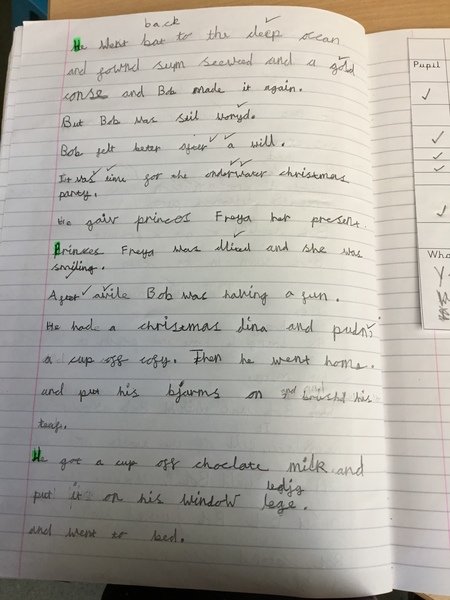 back
He went bat to the deep ocean
and fownd sum seeweed and a gold
conse and Bob made it again.
But Bob was stil woryd.
Bob felt beter after a will.
It was time for the underwater christmas
party.
He gaiv princes Freya her present.
Princes Freya was and she was
smiling.
After awile Bob was having a fun.
He had a christmas dina and
a cup off cofy. Then he went home.
and put his bjarms on and brusht his
teaf.
He got a cup off choclate milk and
ledjg
put it on his window lege.
and went to bed.
Pupil